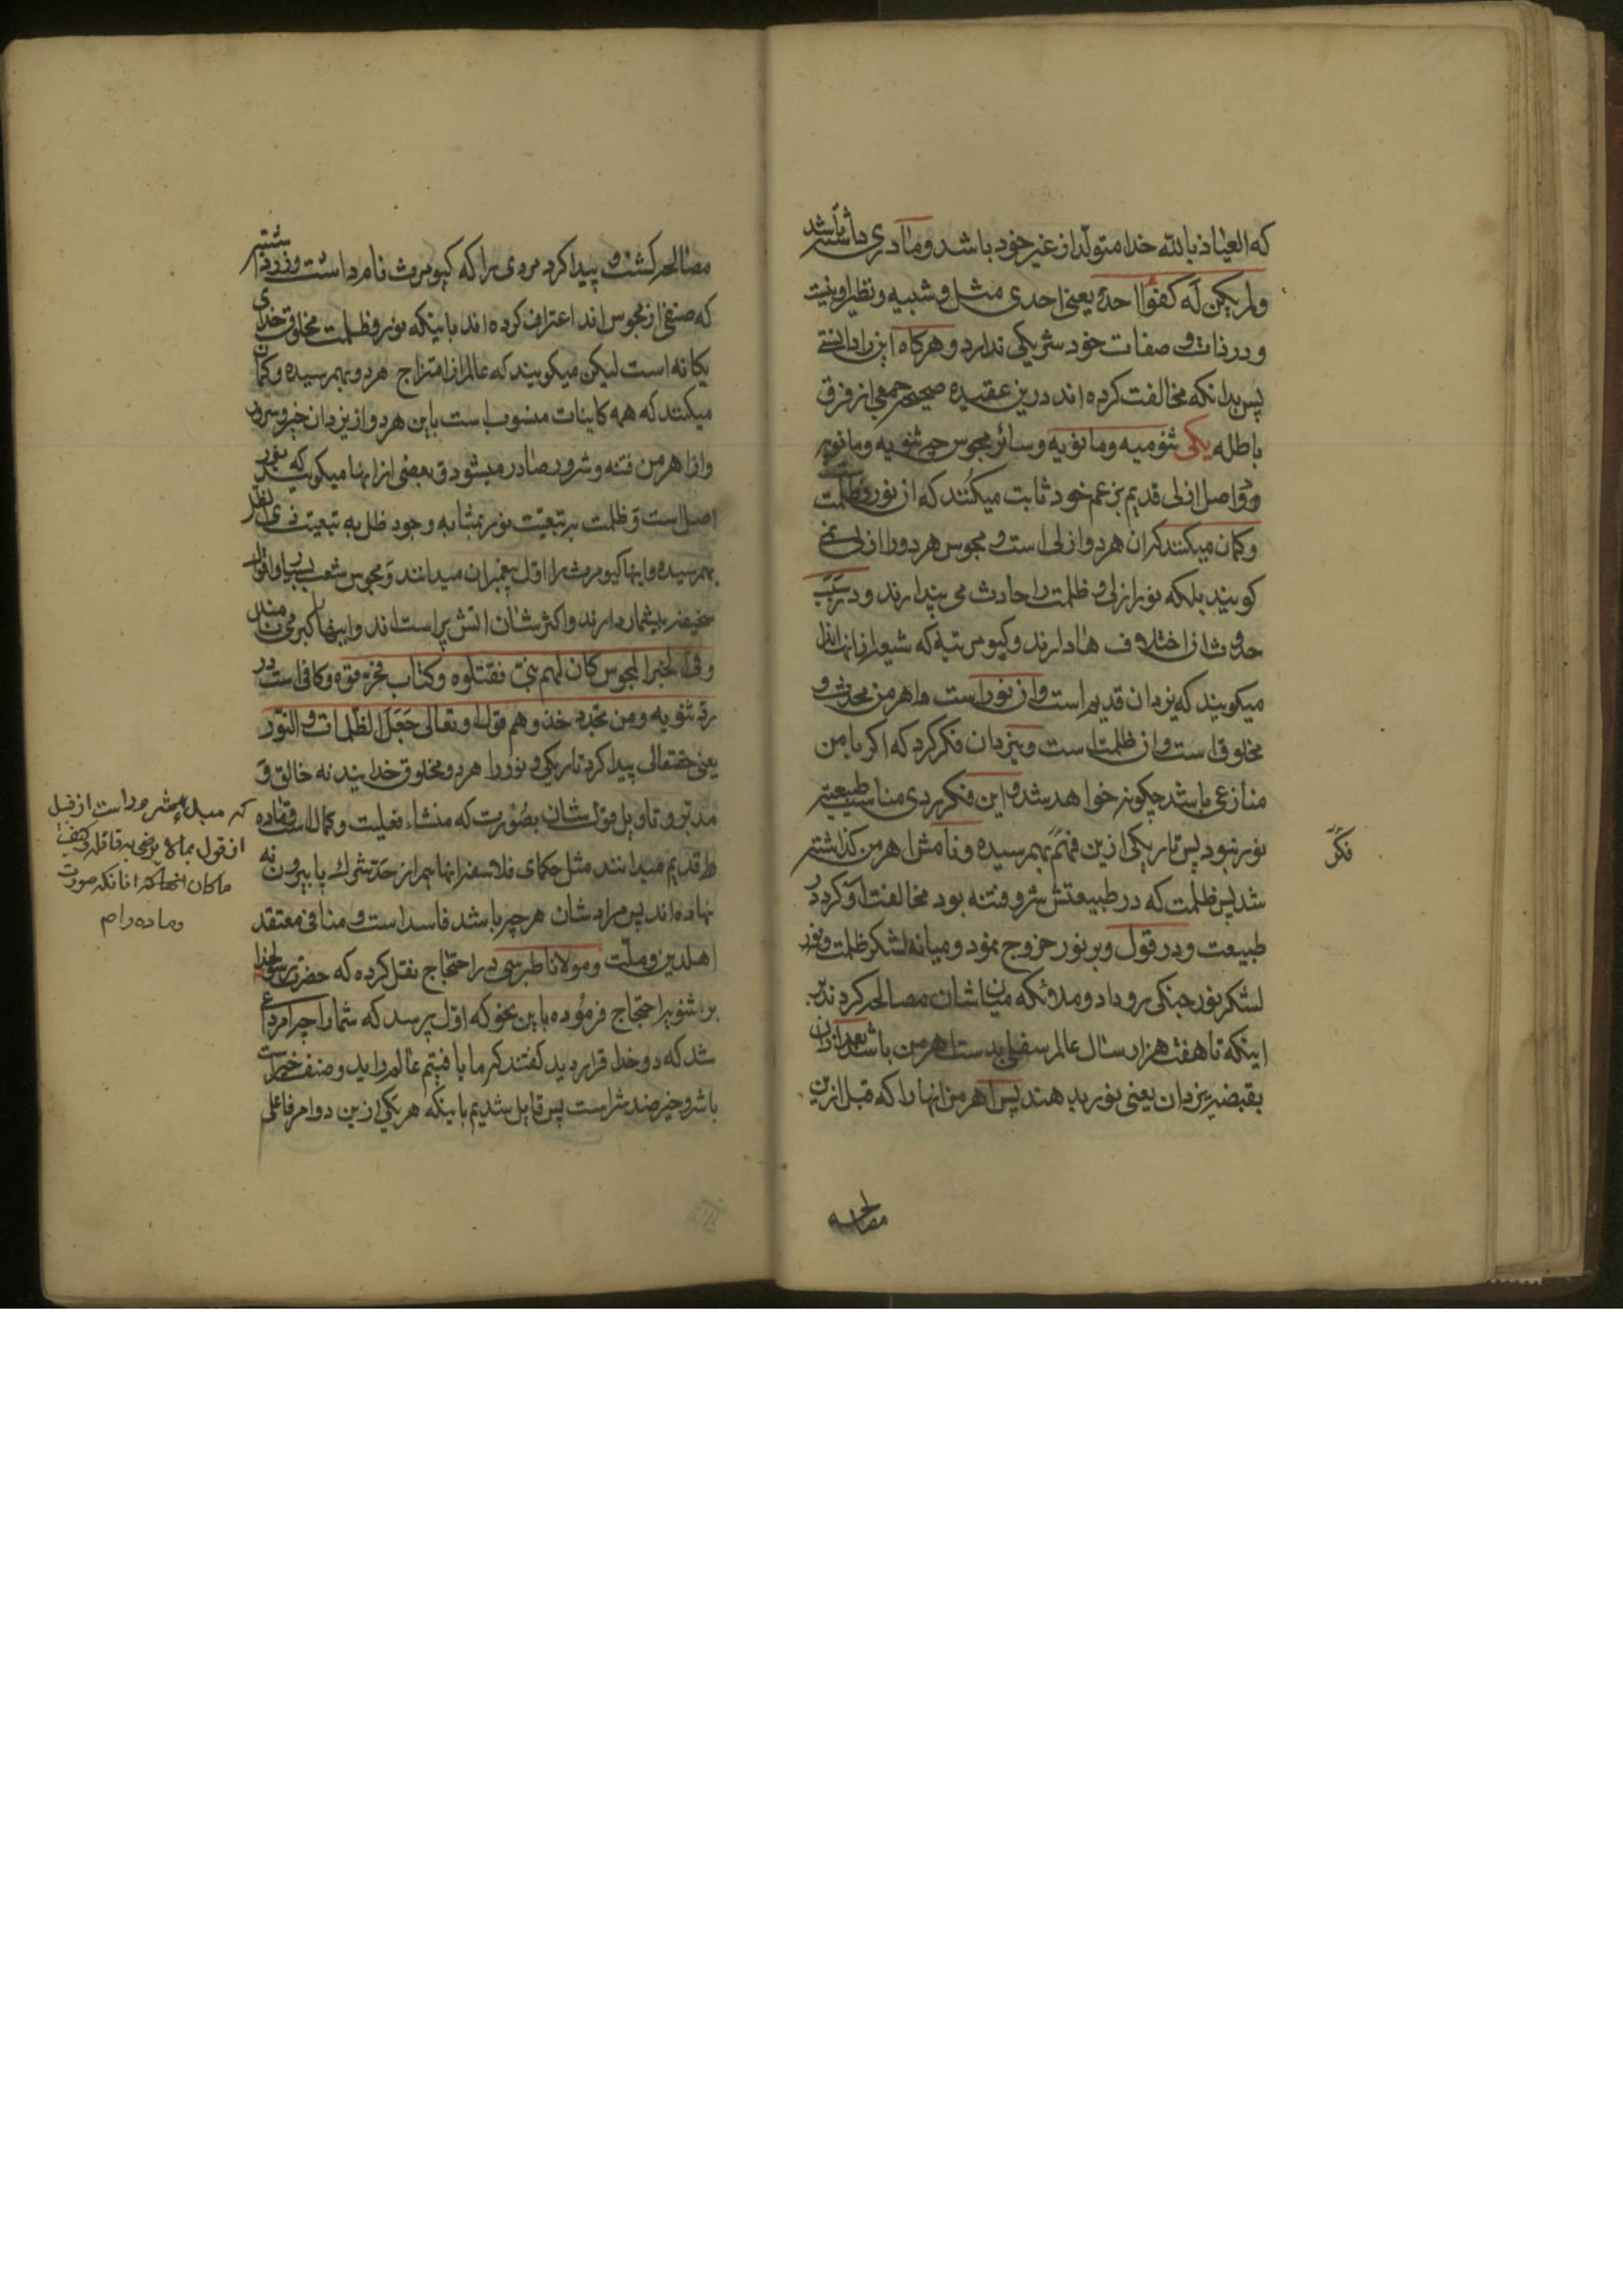 که العیاذ بالله خدا متولد از غیر خود باشد و مادری داشته باشد
ولم یکن له کفوا احد یعنی احدی مثل و شبیه و نظیر او نیست
و در ذات و صفات خود شریکی ندارد و هرکاه این را دانستی
پس بدانکه مخالفت کرده اند درین عقیده صحیحه جمعی از فرق
باطله یکی ثنویه و مانویه و سائر مجوس چه ثنویه و مانویه
دو اصل ازلی قدیم بزعم خود ثابت میکنند که از نور و ظلمت است
و کمان میکنند که ان هر دو ازلی است و مجوس هر دو را ازلی نمی
کویند بلکه نور ازلی و ظلمت را حادث می پندارند و در سبب
حدوث ان اختلاف ها دارند و کیومرتیه که
میکویند که یزدان قدیم است و از نور است و اهرمن محدث و
مخلوق است و از ظلمت است و یزدان فکر کرد که اکر با من
منازعی باشد چکونه خواهد شد و این فکر ردی مناسب طبیعت
نور نبود پس تاریکی ازین بهم رسیده و نامش اهرمن کذاشته
فکر
شد پس ظلمت که در طبیعتش شر و فتنه بود مخالفت او کرد در
طبیعت و در قول و بر نور خروج نمود و میانه لشکر ظلمت و نور
لشکر نور جنکی رو داد و ملائکه میان شان مصالحه کردند بر
اینکه تا هفت هزار سال عالم سفلی بدست اهرمن باشد بعد ازان
بقبضه یزدان یعنی نور بدهند پس اهرمن انها را که قبل ازین
مصالحه
مصالحه کشت و پیدا کرد مردی را که کیومرث نام داشت و زردشتیه
که صنفی از مجوس اند اعتراف کرده اند باینکه نور و ظلمت مخلوق خدای
یکانه است لیکن میکویند که عالم از امتزاج هر دو بهم رسیده و کمان
میکنند که همه کاینات منسوب است باین هر دو از یزدان خیر و سرور
و از اهرمن فتنه و شرور صادر میشود و بعضی از انها میکویند که نور
اصل است و ظلمت به تبعیت نور بمثابه وجود ظل به تبعیت ذی الظل
بهم رسیده و اینها کیومرث را اول پیغمبران میدانند و مجوس شعب بسیار و اقوال
سخیفه بیشمار دارند و اکثر شان اتش پرست اند و اینها کبر می نامند
و فی الخبر المجوس کان لهم نبی فقتلوه و کتاب فحرقوه و کافی است در
رد ثنویه و من یحذو حذوهم قوله تعالی جعل الظلمات و النور
یعنی حقتعالی پیدا کرد تاریکی و نور را هر دو مخلوق خدایند نه خالق و
مدبر و تاویل قول شان بصورت که منشاء فعلیت و کمال است و ماده
که مبدء شرور است از قبل
از قول
ما کان
و ماده را م
قدیم میدانند مثل حکمای فلاسفه انها هم از حد شرک پا بیرون نه
نهاده اند پس مراد شان هرچه باشد فاسد است و منافی معتقد
اهل دین و ملت و مولانا طبرسی در احتجاج نقل کرده که حضرت رسول خدا
بر ثنویه احتجاج فرموده باین نحو که اول پرسید که شما را چه امر داعی
شد که دو خدا قرار دادید کفتند که ما یافتیم عالم را بر دو صنف خیر است
یا شر و خیر ضد شر است پس قایل شدیم باینکه هر یکی ازین دو امر فاعلی